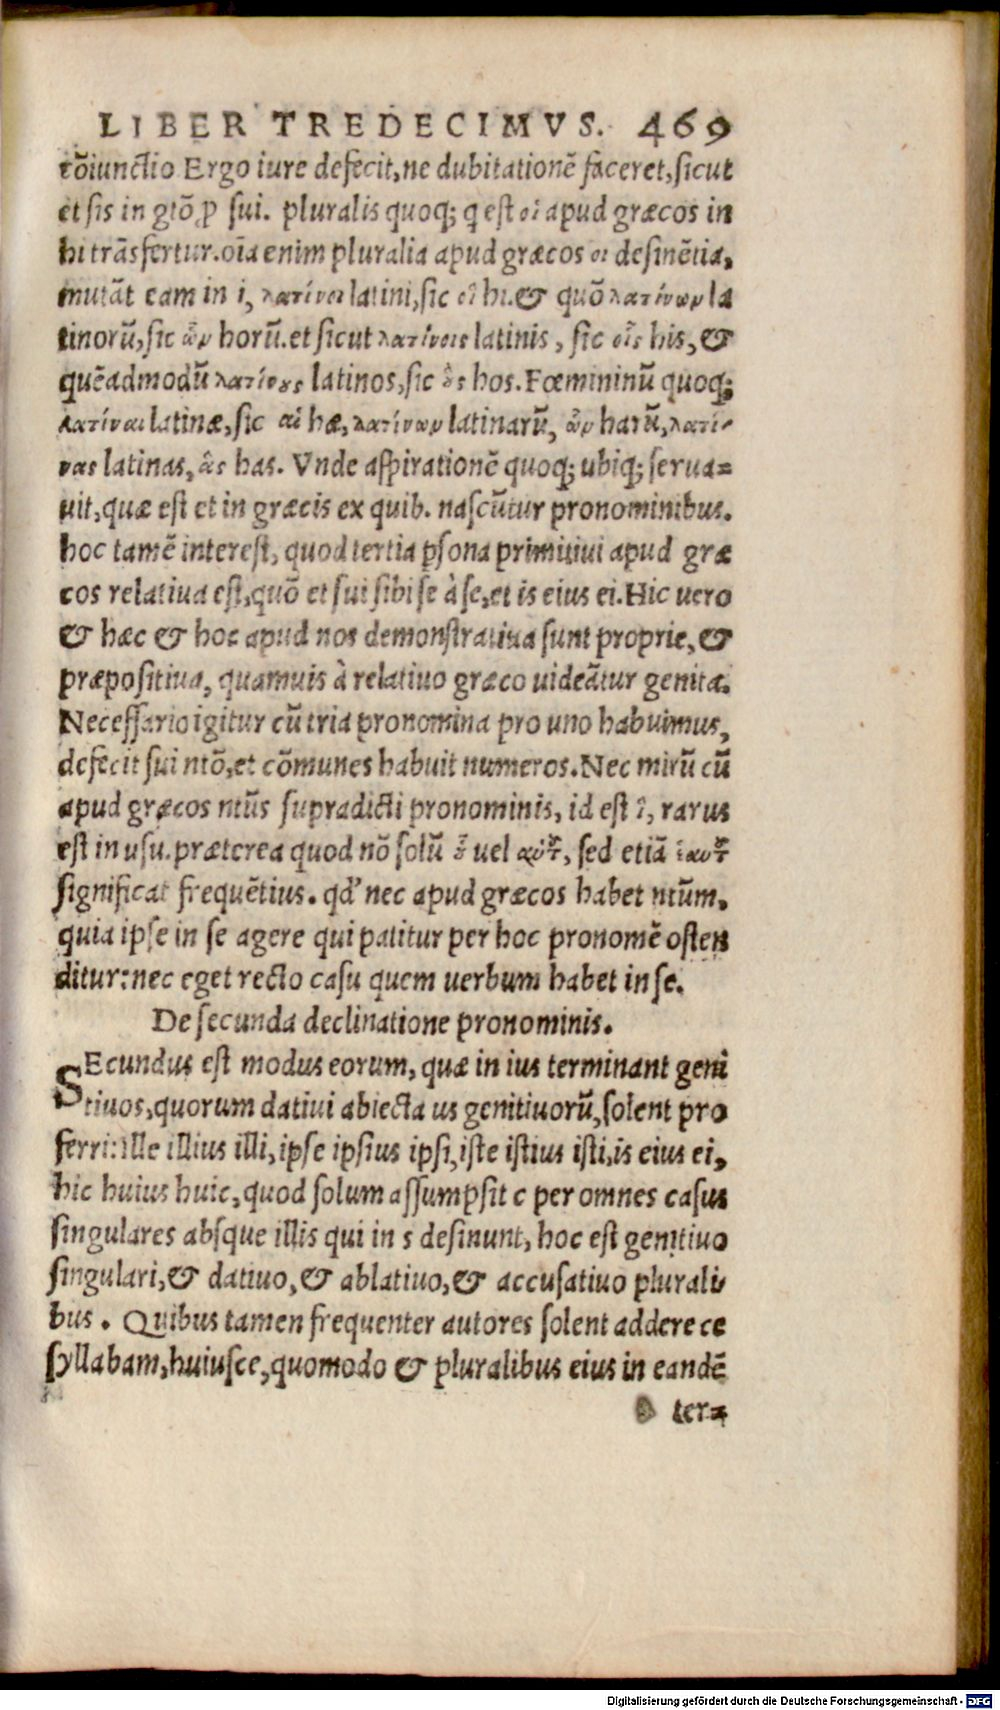 LIBER TREDECIMVS. 469
cōiunctio Ergo iure defecit, ne dubitationē faceret, sicut
et sis in gtō, ꝓ sui. pluralis quoq; q est οἳ apud græcos in
hi trāsfertur. oīa enim pluralia apud græcos οι desinētia,
mutāt eam in i, λατίνοι latini, sic οἳ hi. & quō λατίνων la
tinorū, sic ὧν horū. et sicut λατίνοις latinis, sic οἷς his, &
quēadmodū λατίνους latinos, sic οὓς hos. Fœmininū quoq;
λατίναι latinæ, sic αἳ hæ, λατίνων latinarū, ὧν harū, λατί-
νας latinas, ἃς has. Vnde aspirationē quoq; ubiq; serua=
uit, quæ est et in græcis ex quib. nascūtur pronominibus.
hoc tamē interest, quod tertia ꝑsona primitiui apud græ
cos relatiua est, quō et sui sibi se à se, et is eius ei. Hic uero
& hæc & hoc apud nos demonstratiua sunt proprie, &
præpositiua, quamuis à relatiuo græco uideātur genita.
Necessario igitur cū tria pronomina pro uno habuimus,
defecit sui ntō, et cōmunes habuit numeros. Nec mirū cū
apud græcos ntūs supradicti pronominis, id est ἳ, rarus
est in usu. præterea quod nō solū οὗ uel αὐτοῦ, sed etiā ἑαυτοῦ
significat frequētius. qď nec apud græcos habet ntūm.
quia ipse in se agere qui patitur per hoc pronomē osten
ditur: nec eget recto casu quem uerbum habet in se.
De secunda declinatione pronominis.
SEcundus est modus eorum, quæ in ius terminant geni
tiuos, quorum datiui abiecta us genitiuorū, solent pro
ferri: ille illius illi, ipse ipsius ipsi, iste istius isti, is eius ei,
hic huius huic, quod solum assumpsit c per omnes casus
singulares absque illis qui in s desinunt, hoc est genitiuo
singulari, & datiuo, & ablatiuo, & accusatiuo plurali
bus. Quibus tamen frequenter autores solent addere ce
syllabam, huiusce, quomodo & pluralibus eius in eandē
ter=
Digitalisierung gefördert durch die Deutsche Forschungsgemeinschaft - DFG